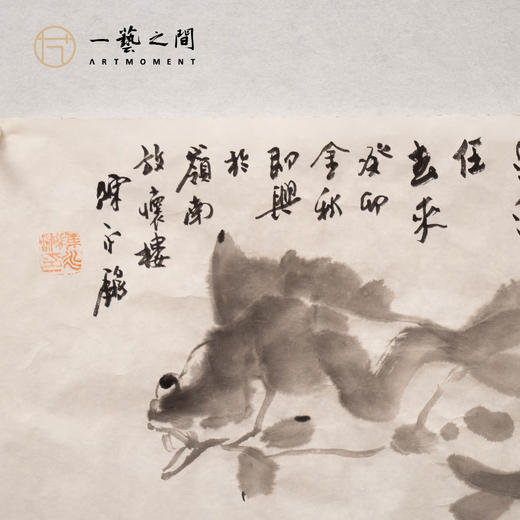 一藝之間
ARTMOMENT
任
去來
癸卯
金秋
即興
於
嶺南
放懷樓
陳永鏘